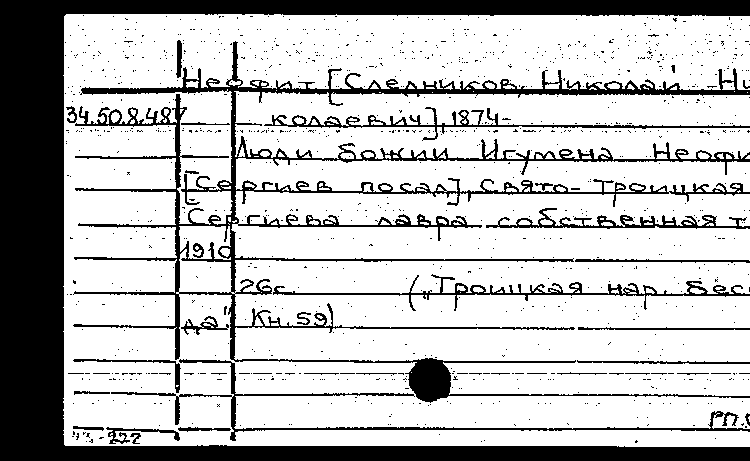 Неофит [Следников, Николай Ни
34.50.8.487 колаевич], 1874-
Люди божии Игумена Неофи
[Сергиев посад], Свято-Троицкая
Сергиева лавра собственная т
1910
26с. („Троицкая нар. бесе
да". Кн. 59)
РП.